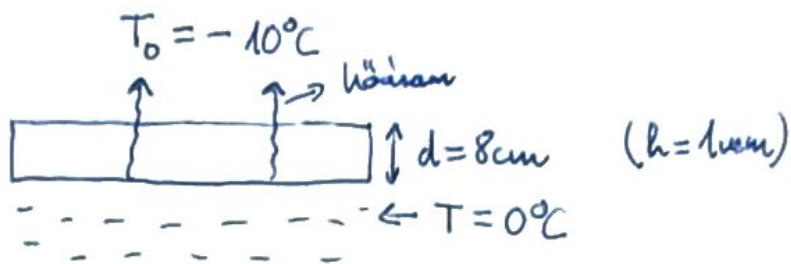 T₀ = - 10°C
hőáram
d = 8cm
(h = 1mm)
T = 0°C